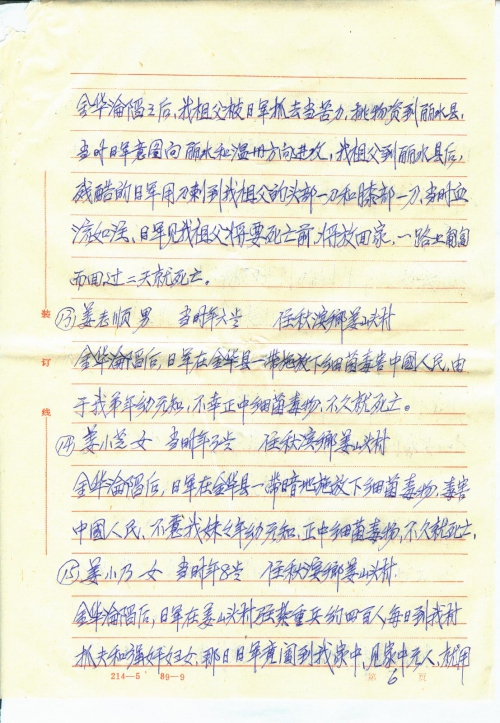 金华淪陷之后,我祖父被日军抓去当苦力,挑物资到丽水县,
当时日军意图向丽水和温州方向进攻,我祖父到丽水县后,
残酷的日军用刀刺到我祖父的头部一刀和膝部一刀,当时血
流如注、日军见我祖父将要死亡前,将放回家,一路上匍匐
而回,过二天就死亡。
⑬姜志顺 男 当时年六岁 住秋滨鄉姜山头村
金华淪陷后,日军在金华县一带施放下细菌毒害中國人民,由
于我弟年幼无知,不幸正中细菌毒物,不久就死亡。
⑭姜小芝 女 当时年3岁 住秋滨鄉姜山头村
金华淪陷后,日军在金华县一带暗地施放下细菌毒物,毒害
中國人民、不意我妹女年幼无知,正中细菌毒物,不久就死亡,
⑮姜小乃 女 当时年8岁 住秋滨鄉姜山头村.
金华淪陷后,日军在姜山头村驻紮重兵约四百人,每日到我村
抓夫和强奸妇女,那日日军竟闯到我家中,见家中无人,就用
装
订
线
214—5 89—9
第 6 页